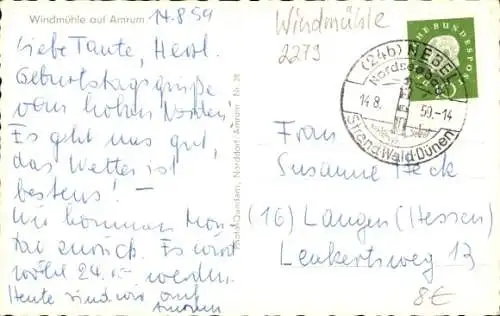 Windmühle auf Amrum
14.8.59
Liebe Tante, Herzl.
Geburtstagsgrüße
vom hohen Norden!
Es geht uns gut,
das Wetter ist
bestens! –
Wir kommen Mon
tag zurück. Es wird
wohl 24.00 werden.
Heute sind wir auf
Amrum
Foto: Quedens, Norddorf/Amrum Nr. 28
Windmühle
2279
DEUTSCHE BUNDESPOST
(24b) NEBEL
Nordseebad
14.8. 59.-14
Strand·Wald·Dünen
Frau
Susanne Heck
(16) Langen (Hessen)
Leukertsweg 13
8€